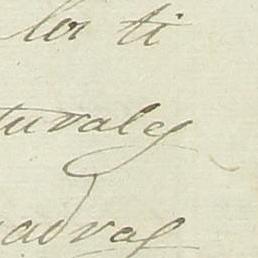 los ti
turales
uadras